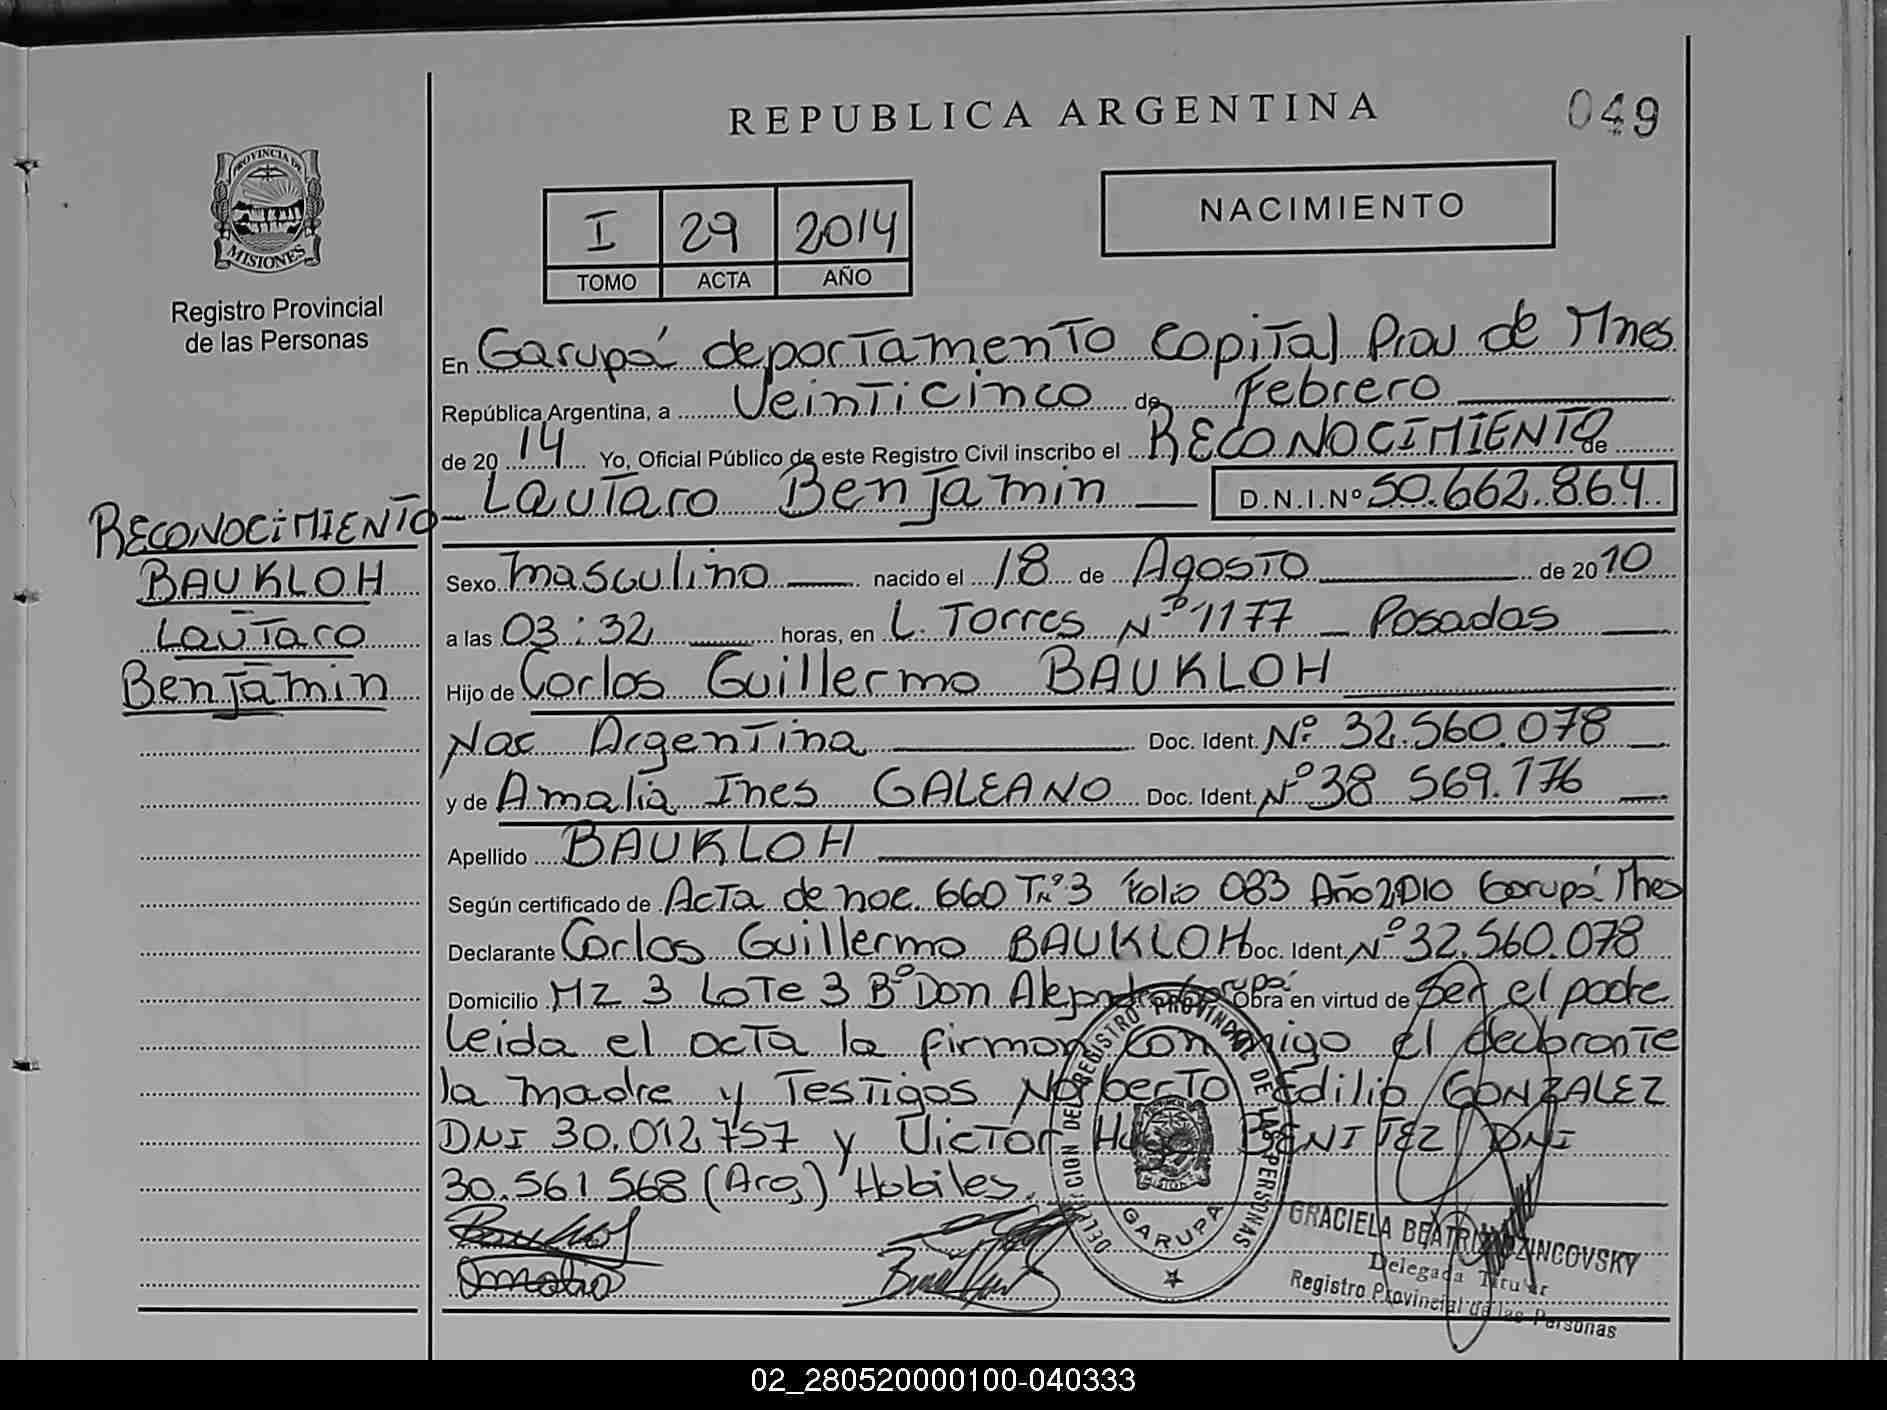 REPUBLICA ARGENTINA
049
PROVINCIA DE
MISIONES
Registro Provincial
de las Personas
I 29 2014
TOMO ACTA AÑO
NACIMIENTO
En Garupá departamento Capital Prov de Mnes
República Argentina, a Veinticinco de Febrero
de 2014 Yo, Oficial Público de este Registro Civil inscribo el RECONOCIMIENTO de
Lautaro Benjamin D.N.I.Nº 50.662.864
RECONOCIMIENTO
BAUKLOH
Lautaro
Benjamin
Sexo masculino nacido el 18 de Agosto de 2010
a las 03:32 horas, en L. Torres Nº 1177 Posadas
Hijo de Carlos Guillermo BAUKLOH
Nac Argentina Doc. Ident. Nº 32.560.078
y de Amalia Ines GALEANO Doc. Ident. Nº 38 569.176
Apellido BAUKLOH
Según certificado de Acta de nac. 660 Tº Nº3 folio 083 Año 2010 Garupá Mnes
Declarante Carlos Guillermo BAUKLOH Doc. Ident. Nº 32.560.078
Domicilio MZ 3 Lote 3 Bº Don Alejandro Garupá Obra en virtud de Ser el padre
Leida el acta la firman conmigo el declarante
la madre y Testigos Norberto Edilio GONZALEZ
DNI 30.012.757 y Victor Hugo BENITEZ DNI
30.561.568 (Arg) Habiles.
DELEGACION DEL REGISTRO PROVINCIAL DE LAS PERSONAS
MISIONES
GARUPA
GRACIELA BEATRIZ
Delegada Titular
Registro Provincial de las Personas
Amalia
02_280520000100-040333